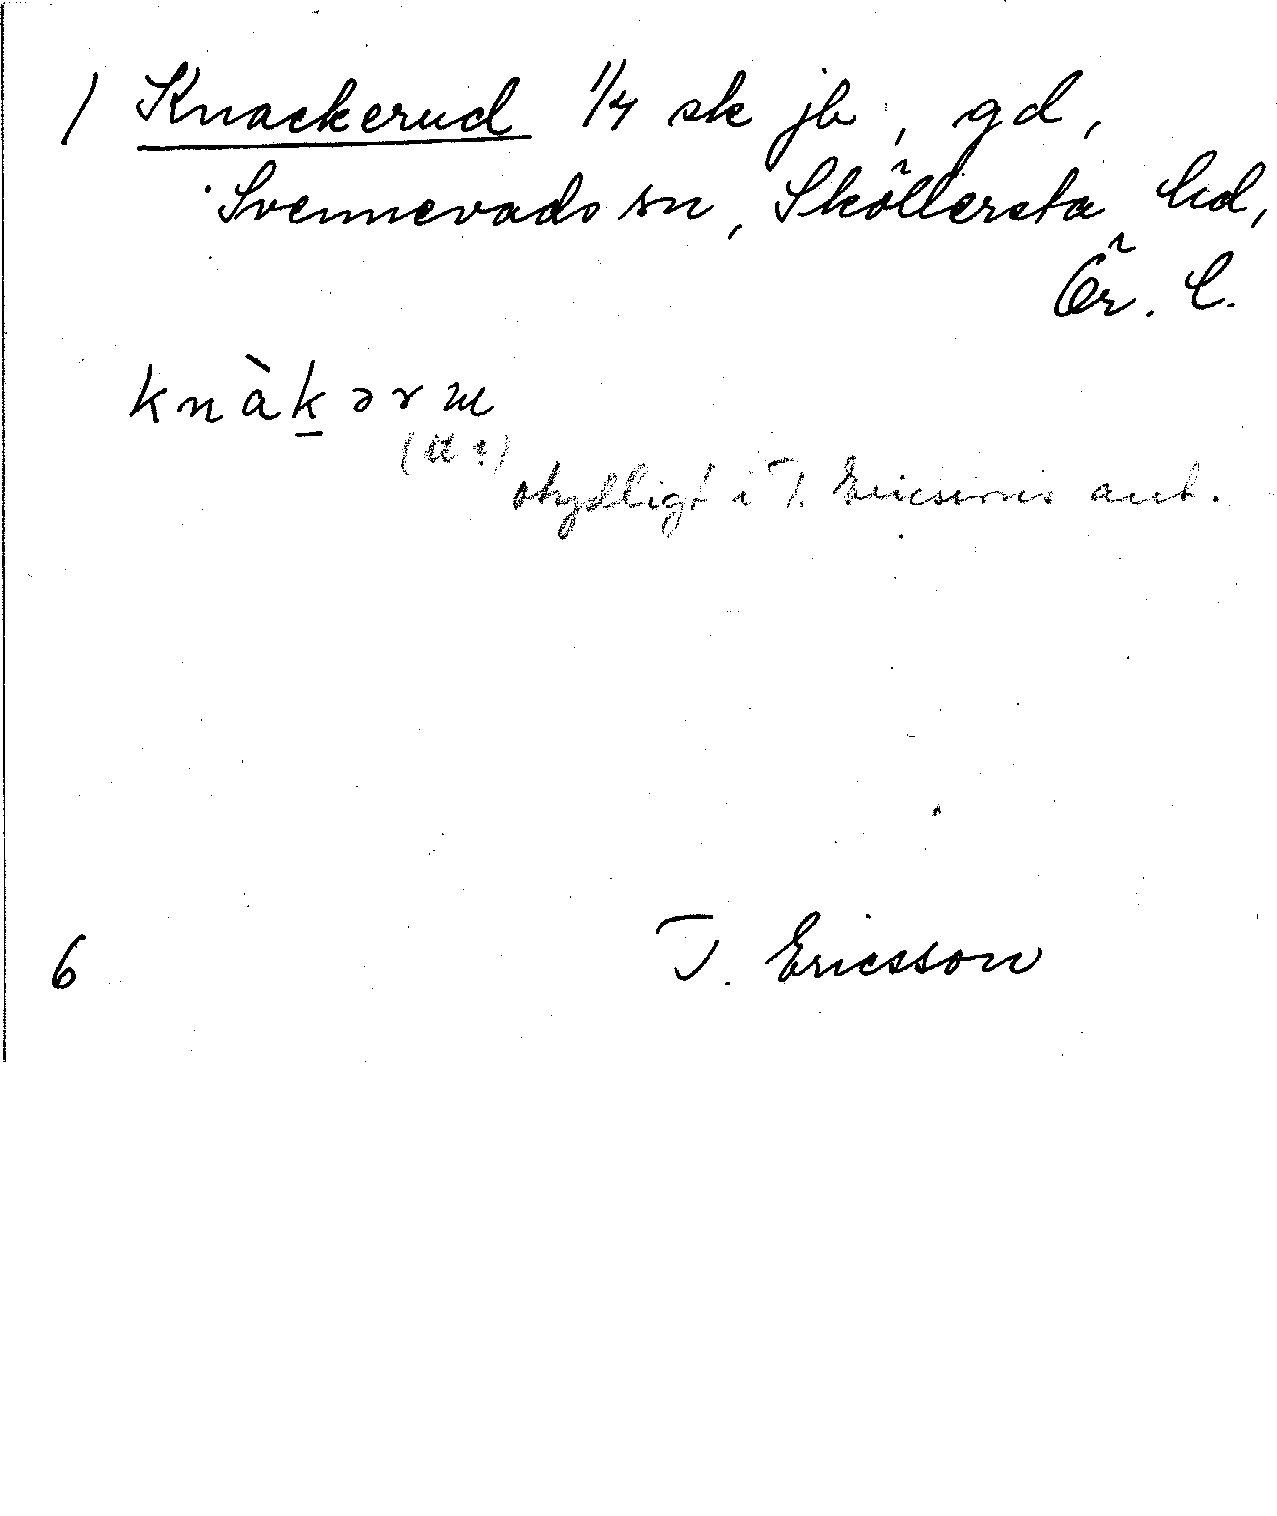 1 Knackerud 1/4 sk jb, gd,
Svennevads sn, Sköllersta hd,
Ör. l.
knàk̲ərɯ
(u ?)
otydligt i T. Ericsons ant.
6 T. Ericsson